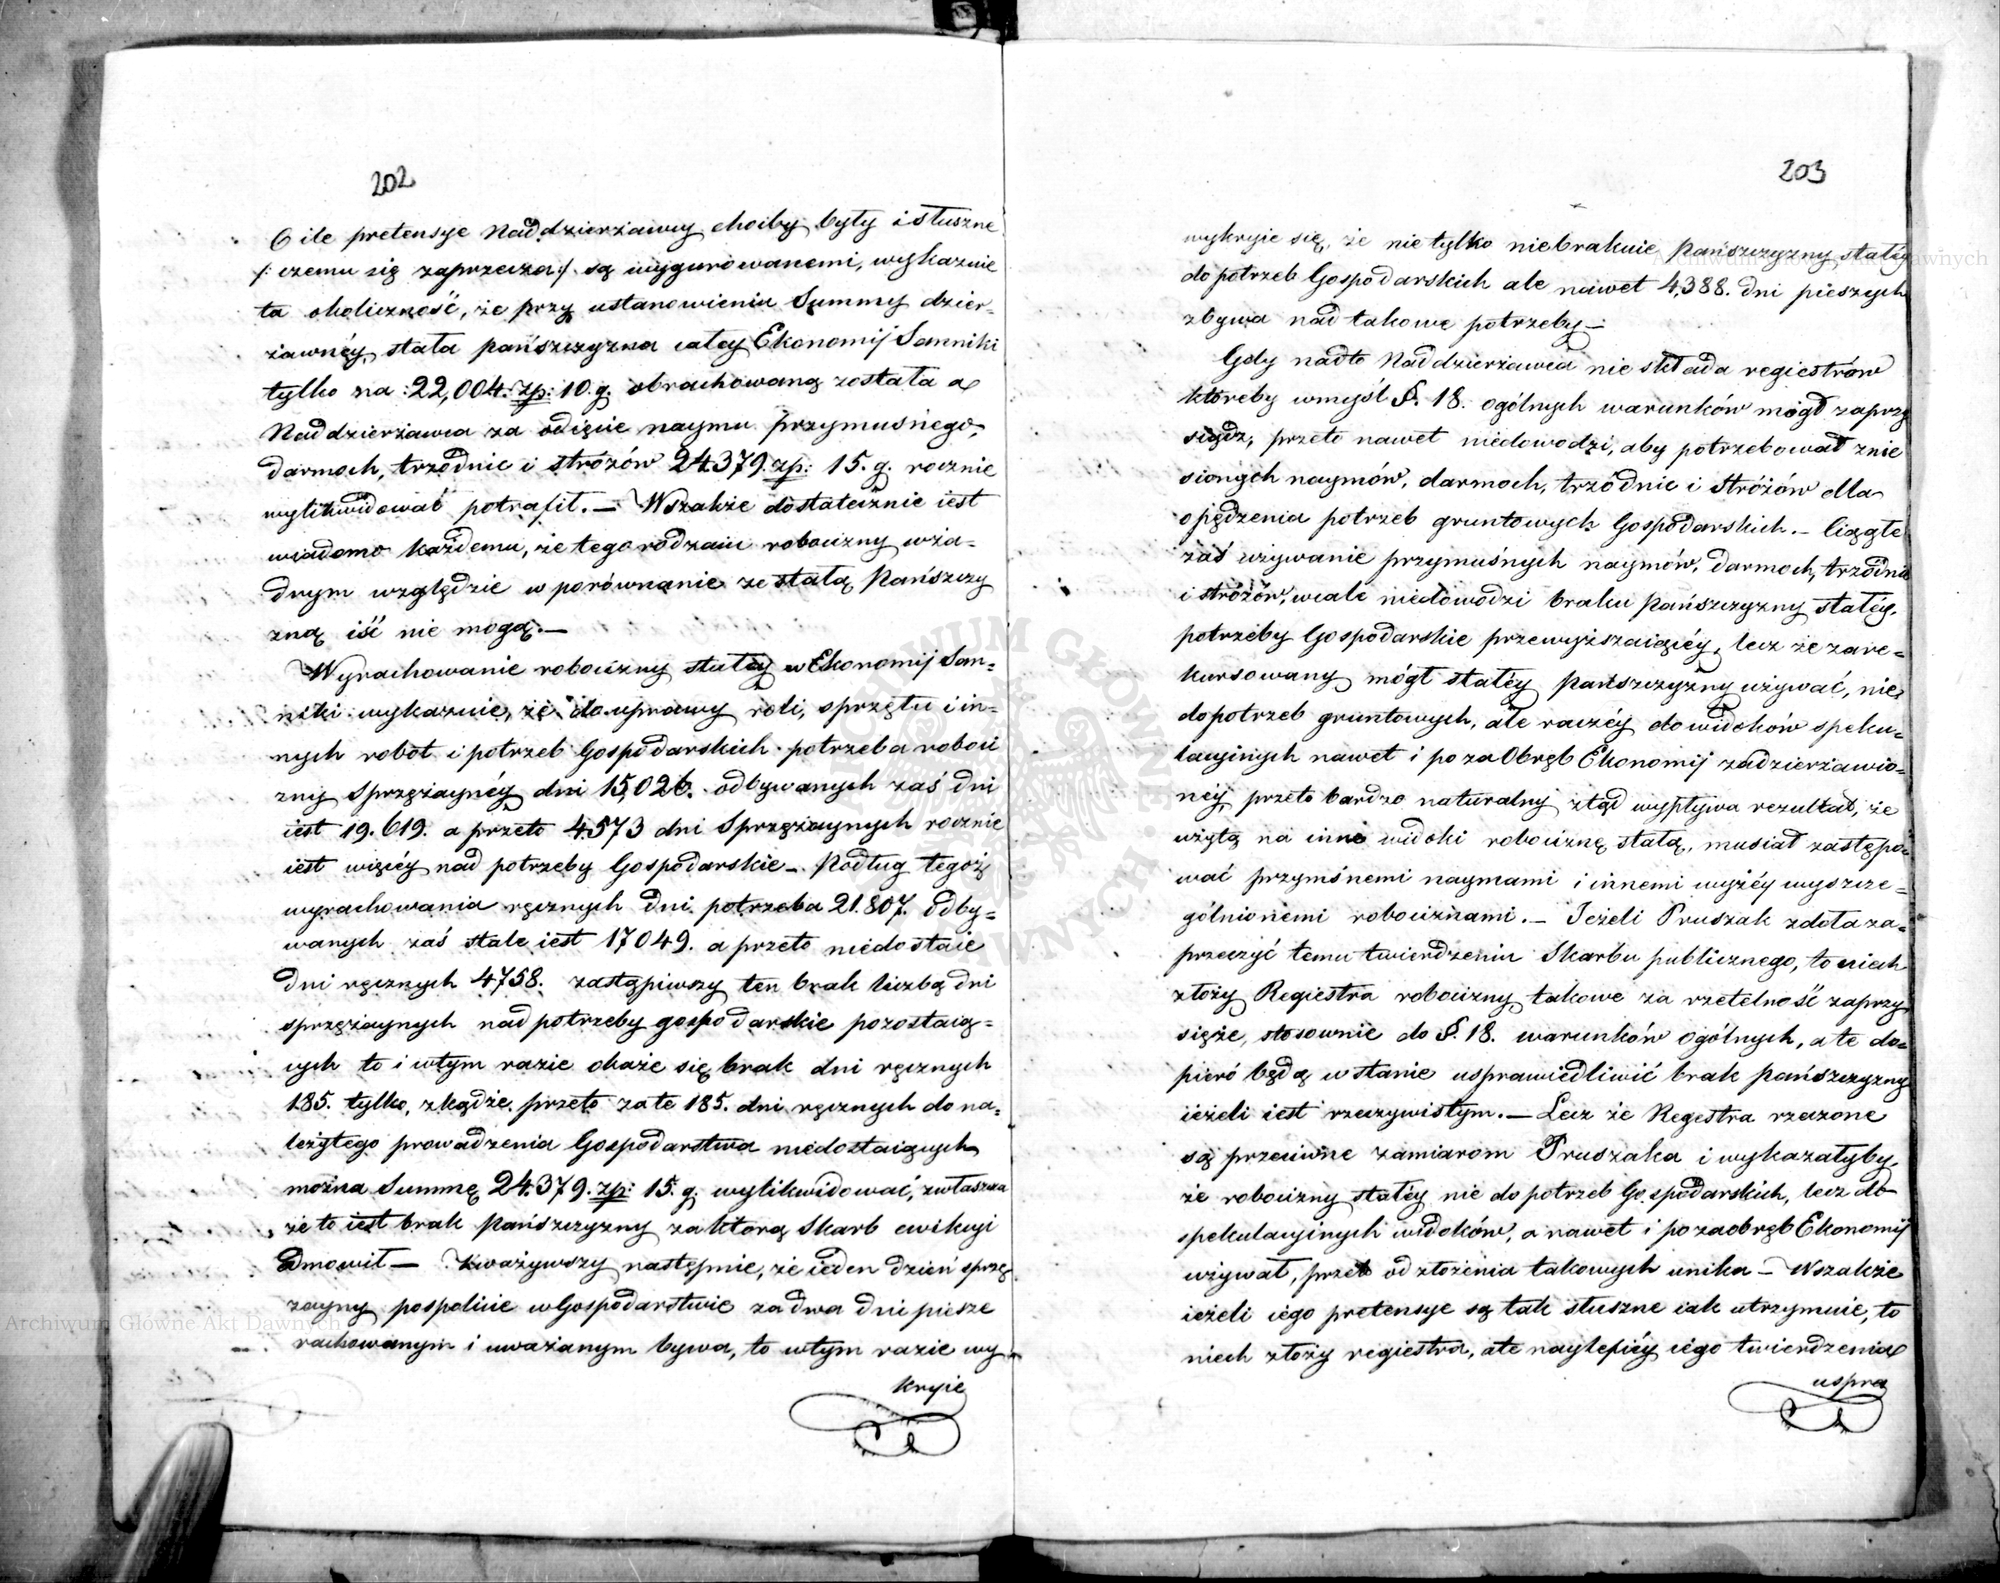 202
O ile pretensye Naddzierżawcy choćby były i słuszne
/: czemu się zaprzecza :/ są wygurowanemi, wykazuie
ta okoliczność, że przy ustanowieniu Summy dzier-
żawnéy, stała pańszczyzna całey Ekonomij Sanniki
tylko na : 22,004. zp: 10. g. obrachowaną została a
Naddzierżawca za odięcie naymu przymusnego,
darmoch, trzodnic i stróżów 24379. zp: 15. g. rocznie
wylikwidować potrafił. — Wszakże dostatecznie iest
wiadomo każdemu, że tego rodzaiu robocizny w ża-
dnym względzie w porównanie ze stałą Pańszczy
zną iść nie mogą. —
Wyrachowanie robocizny stałéy w Ekonomij San-
niki wykazuie, że do uprawy roli, sprzętu i in-
nych robot i potrzeb Gospodarskich potrzeba roboci
zny Sprzężaynéy dni 15,026. odbywanych zaś dni
iest 19.619. a przeto 4573 dni Sprzężaynych rocznie
iest więcéy nad potrzeby Gospodarskie — Podług tegoż
wyrachowania ręcznych dni potrzeba 21.807. odby-
wanych zaś stale iest 17049. a przeto niedostaie
dni ręcznych 4758. zastąpiwszy ten brak liczbą dni
sprzężaynych nad potrzeby gospodarskie pozostaią-
cych to i w tym razie okaże się brak dni ręcznych
185. tylko, zkądże przeto za te 185. dni ręcznych do na-
leżytego prowadzenia Gospodarstwa niedostaiących
można Summę 24.379. zp: 15. g. wylikwidować, zwłaszcza
że to iest brak Pańszczyzny za którą Skarb ewikcyi
odmowił — Zważywszy następnie, że ieden dzień sprzę
żayny pospolicie w Gospodarstwie za dwa dni piesze
rachowanym i uważanym bywa, to w tym razie wy-
kryie
203
wykryie się, że nie tylko niebrakuie Pańszczyzny stałéy
do potrzeb Gospodarskich ale nawet 4,388. dni pieszych
zbywa nad takowe potrzeby —
Gdy nadto Naddzierżawca nie składa regiestrów
któreby w myśl §. 18. ogólnych warunków mógł zaprzy
siądz, przeto nawet niedowodzi, aby potrzebował znie
sionych naymów, darmoch, trzodnic i stróżów dla
opędzenia potrzeb gruntowych Gospodarskich. — Ciągłe
zaś używanie przymuśnych naymów, darmoch, trzodnic
i stróżów, wcale niedowodzi braku Pańszczyzny stałéy,
potrzeby Gospodarskie przewyższaiącéy, lecz że zare-
kursowany mógł stałéy Pańszczyzny używać, nie
do potrzeb gruntowych, ale raczéy do widoków speku-
lacyinych nawet i po za Obręb Ekonomij zadzierżawio-
néy, przeto bardzo naturalny ztąd wypływa rezultat, że
użytą na inne widoki robociznę stałą, musiał zastępo-
wać przymśnemi naymami i innemi wyżéy wyszcze-
gólnionemi robociznami. — Jeżeli Pruszak zdoła za-
przeczyć temu twierdzeniu Skarbu publicznego, to niech
złoży Regiestra robocizny, takowe za rzetelność zaprzy
sięże, stosownie do §. 18. warunków ogólnych, a te do-
pieró będą w stanie usprawiedliwić brak Pańszczyzny
ieżeli iest rzeczywistym. — Lecz że Regestra rzeczone
są przeciwne zamiarom Pruszaka i wykazałyby,
że robocizny stałéy nie do potrzeb Gospodarskich, lecz do
spekulacyinych widoków, a nawet i poza obręb Ekonomij
używał, przeto od złożenia takowych unika — Wszakże
ieżeli iego pretensye są tak słuszne iak utrzymuie, to
niech złoży regiestra, ate naylepiéy iego twierdzenia
uspra